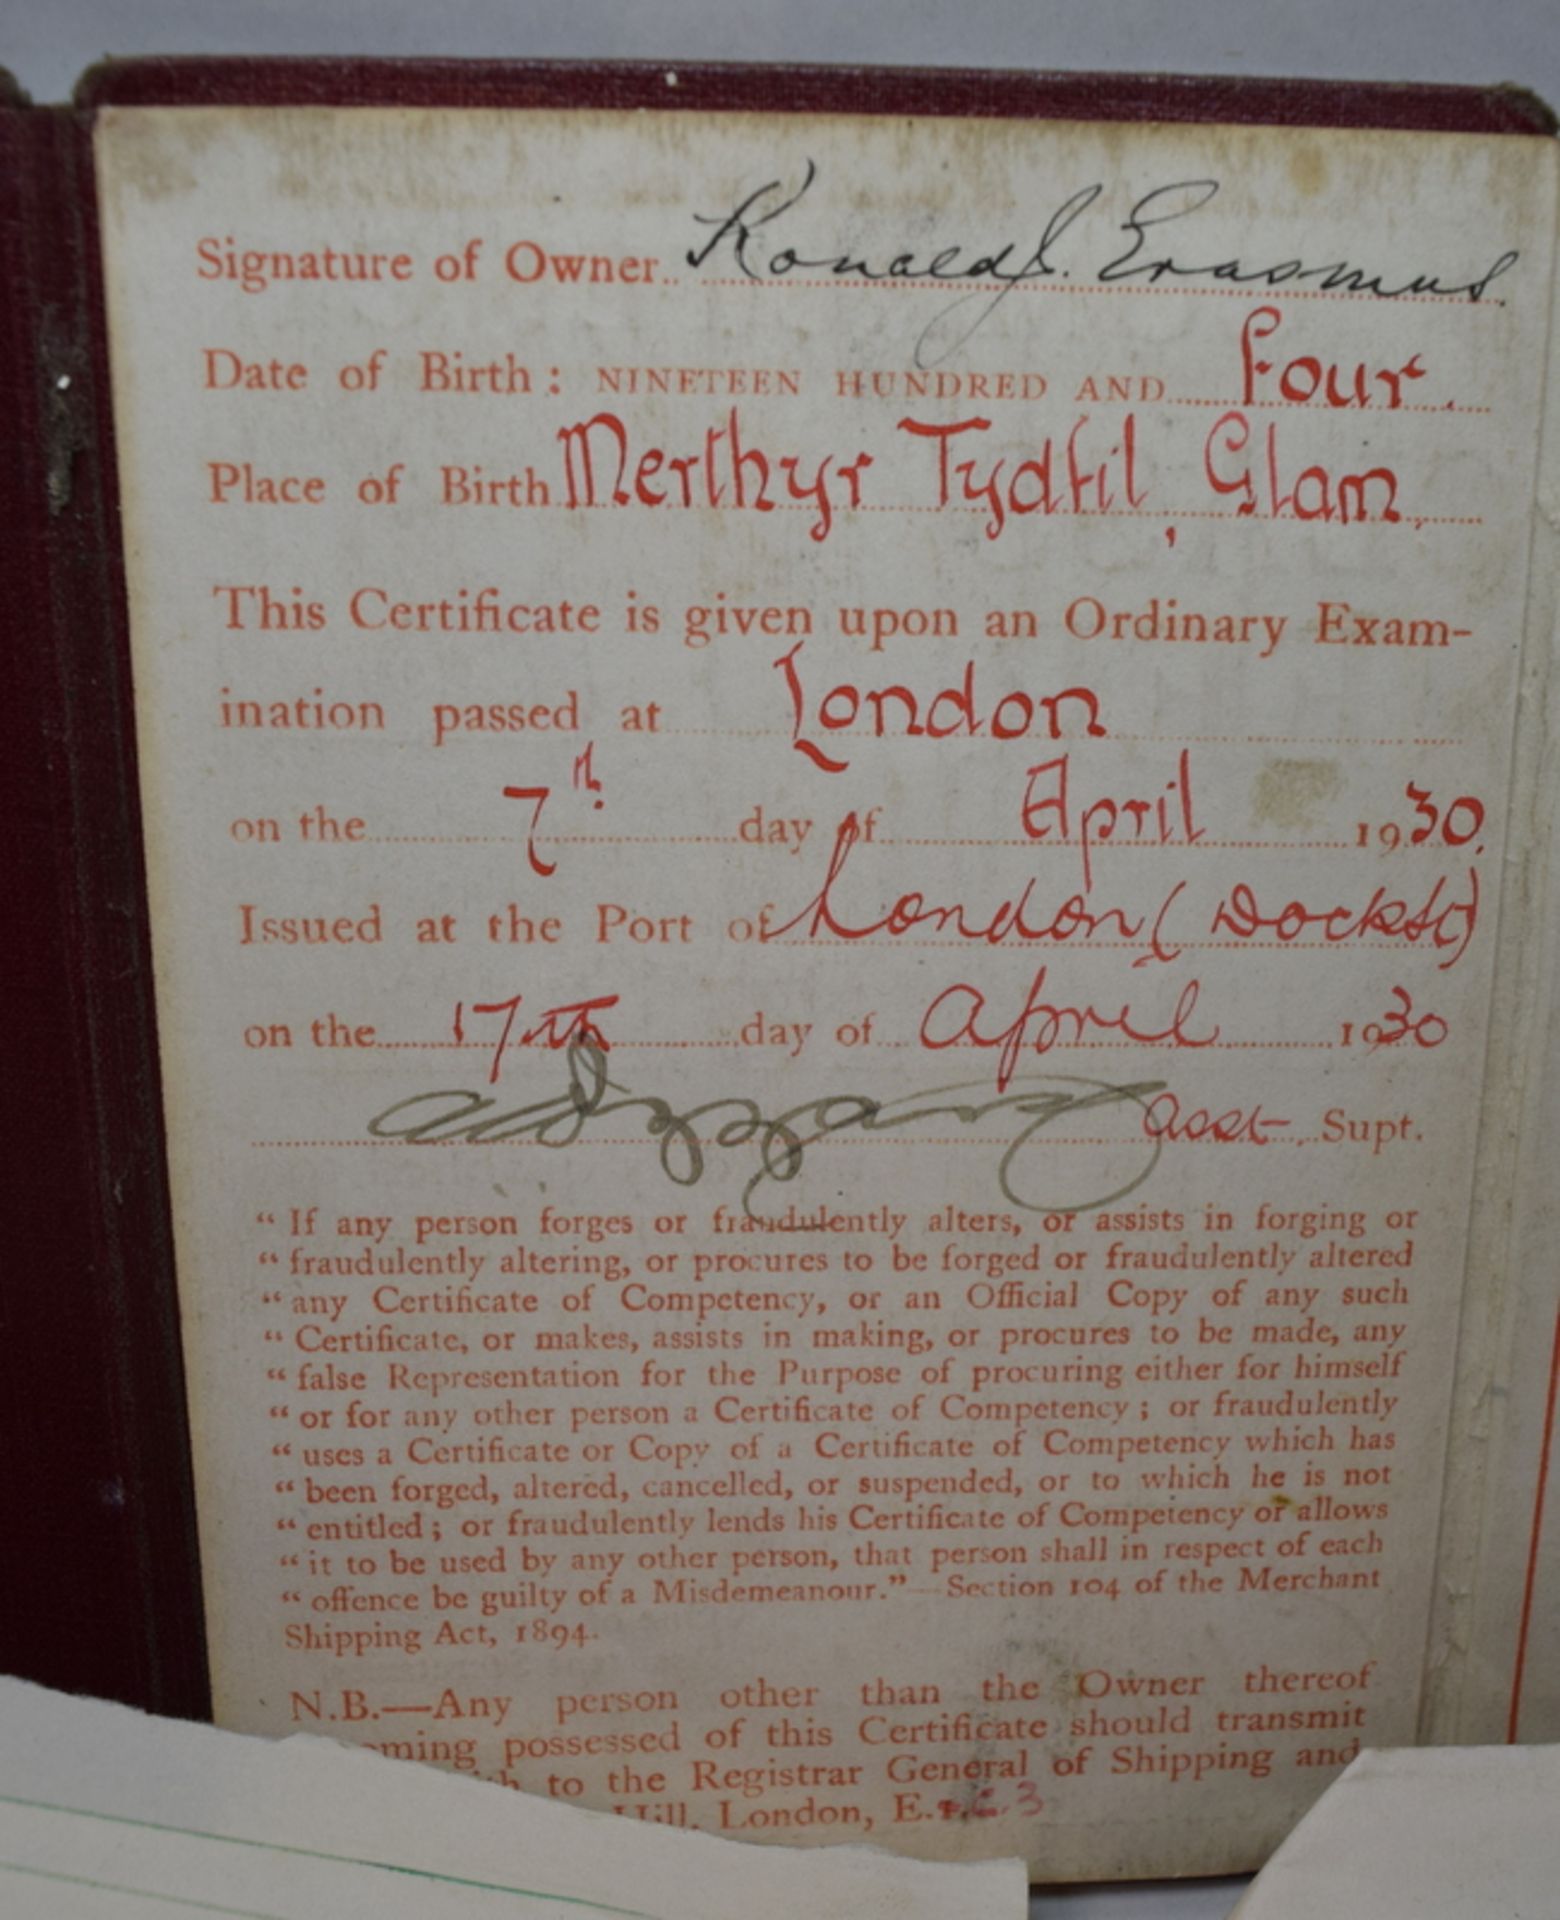 Signature of Owner Ronald J. Erasmus.
Date of Birth: NINETEEN HUNDRED AND Four.
Place of Birth Merthyr Tydfil, Glam,
This Certificate is given upon an Ordinary Exam-
ination passed at London
on the 7th day of April 1930.
Issued at the Port of London (Dock St)
on the 17th day of April 1930
asst. Supt.
“ If any person forges or fraudulently alters, or assists in forging or
“ fraudulently altering, or procures to be forged or fraudulently altered
“ any Certificate of Competency, or an Official Copy of any such
“ Certificate, or makes, assists in making, or procures to be made, any
“ false Representation for the Purpose of procuring either for himself
“ or for any other person a Certificate of Competency; or fraudulently
“ uses a Certificate or Copy of a Certificate of Competency which has
“ been forged, altered, cancelled, or suspended, or to which he is not
“ entitled; or fraudulently lends his Certificate of Competency or allows
“ it to be used by any other person, that person shall in respect of each
“ offence be guilty of a Misdemeanour.”—Section 104 of the Merchant
Shipping Act, 1894.
N.B.—Any person other than the Owner thereof
possessed of this Certificate should transmit
to the Registrar General of Shipping and
Hill, London, E.C.3